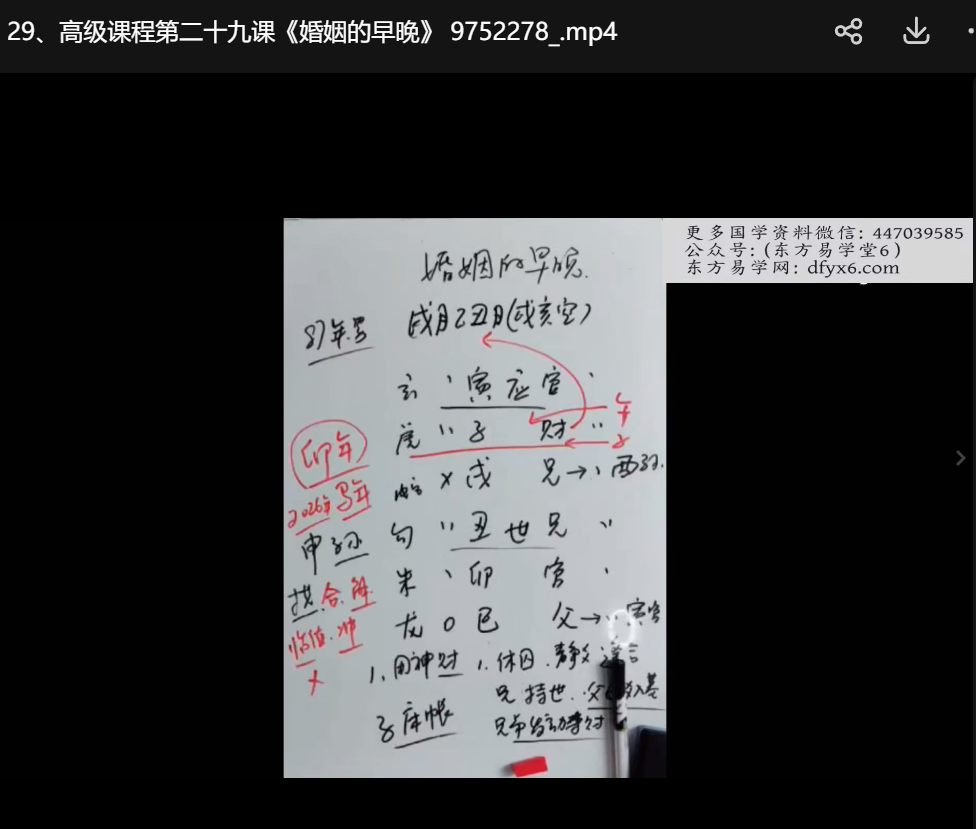 29、高级课程第二十九课《婚姻的早晚》 9752278_.mp4
更多国学资料微信: 447039585
公众号: (东方易学堂6)
东方易学网: dfyx6.com
婚姻的早晚.
戌月乙丑日(戌亥空)
87年男
玄 、寅应官 、
虎 〃子 财 〃
午
子
卯年
x 戌 兄→、酉孙.
2026年马年
申子孙
勾 〃丑世兄 〃
朱 、卯 官 、
龙 O 巳 父→〃寅官
合.解
临值.冲
1.用神财 1.休囚.
兄持世.
子库帐